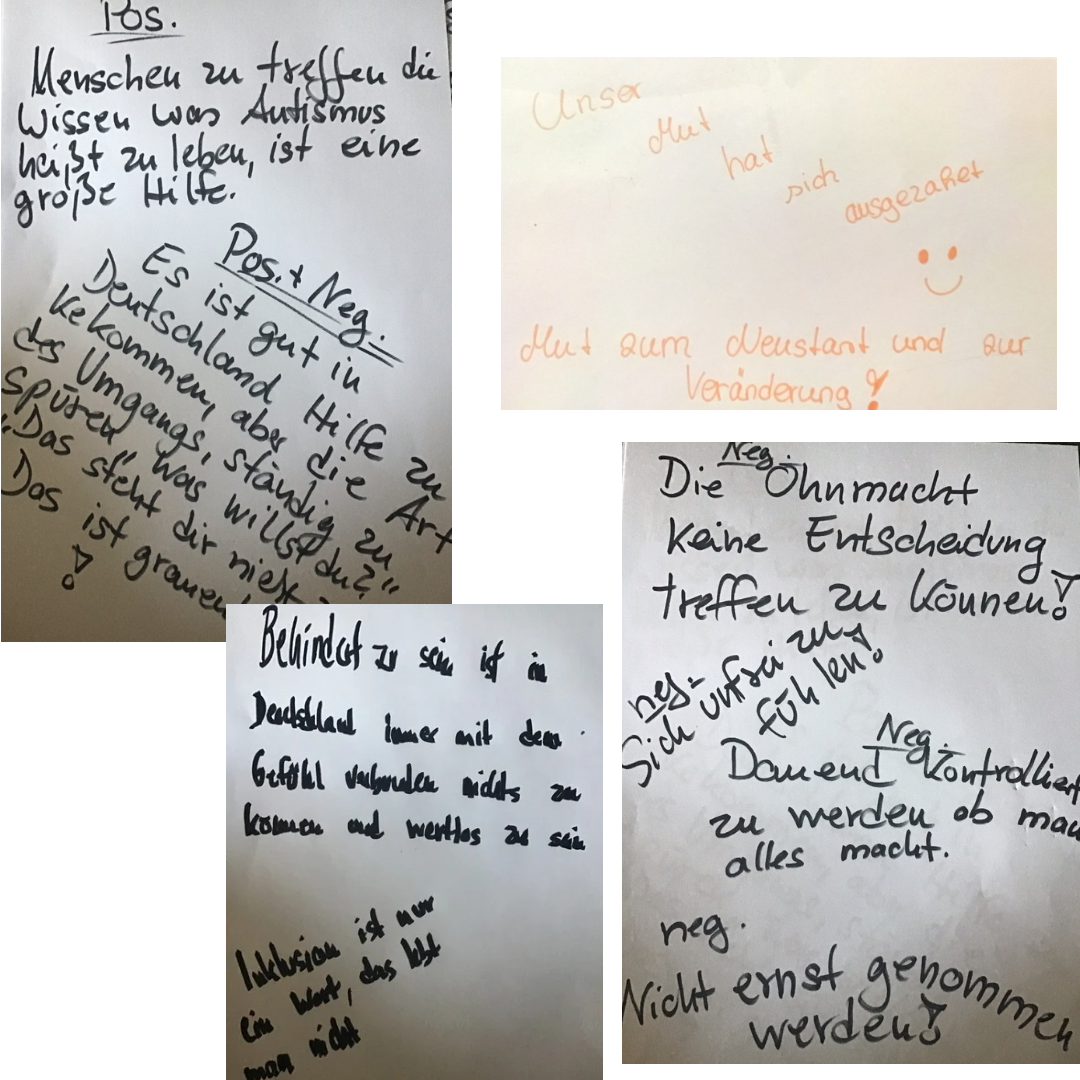 Pos.
Menschen zu treffen die
Wissen was Autismus
heißt zu leben, ist eine
große Hilfe.
Pos. + Neg.
Es ist gut in
Deutschland Hilfe zu
kekommen, aber die Art
des Umgangs, ständig zu
spüren "was willst du?"
"Das steht dir nicht
Das ist grauen
!
Unser
Mut
hat
sich
ausgezahlt
Mut zum Neustart und zur
Veränderung!
Behindert zu sein ist in
Deutschland immer mit dem
Gefühl verbunden nichts zu
können und wertlos zu sein
Inklusion ist nur
ein Wort, das lebt
man nicht
Neg.
Die Ohnmacht
keine Entscheidung
treffen zu können!
neg.
Sich unfrei zu
fühlen!
Neg.
Dauernd Kontrolliert
zu werden ob man
alles macht.
neg.
Nicht ernst genommen
werden!